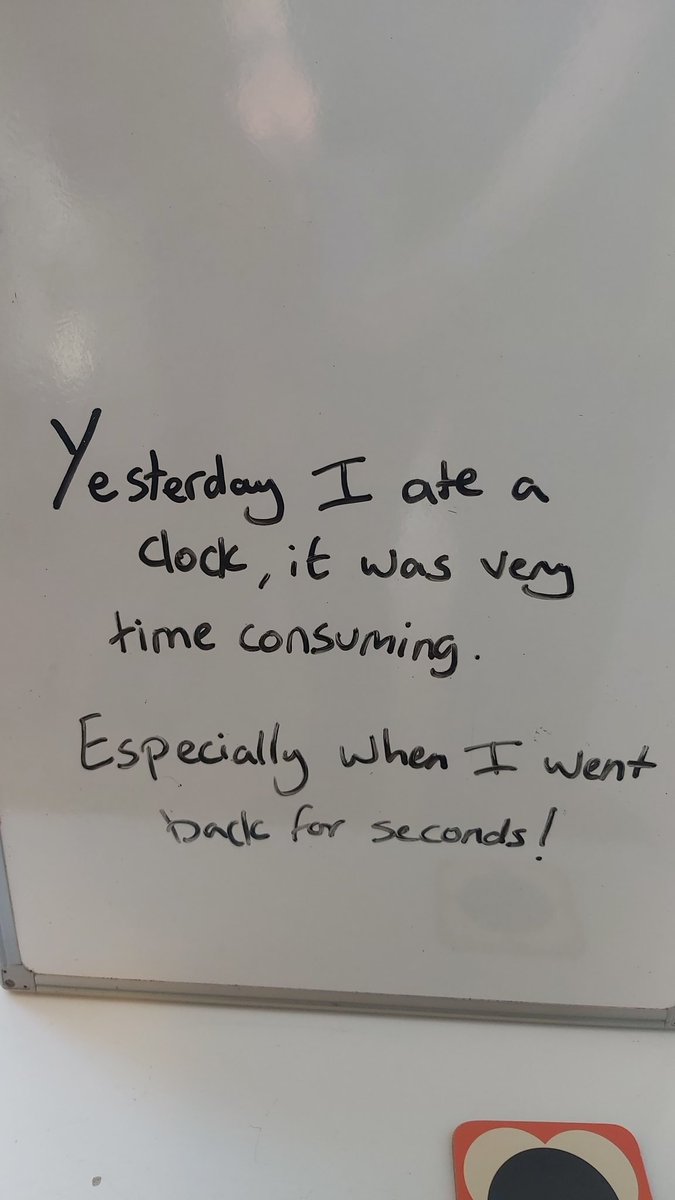 Yesterday I ate a
clock, it was very
time consuming.
Especially when I went
back for seconds!